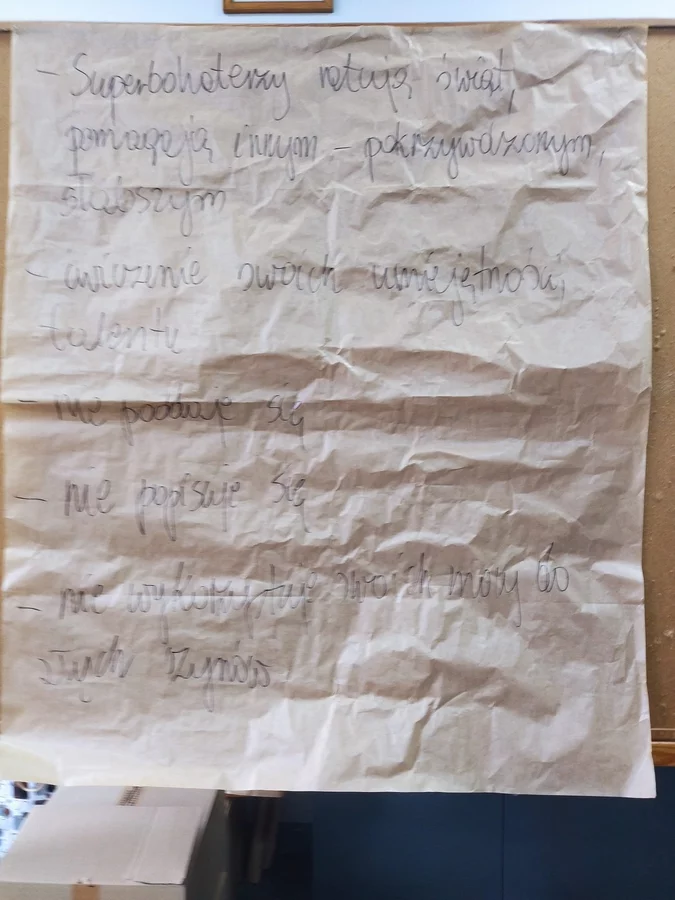 - Superbohaterzy ratują świat,
pomagają innym - pokrzywdzonym,
słabszym
- ćwiczenie swoich umiejętności,
talentu
- nie poddaje się
- nie popisuje się
- nie wykorzystuje swoich mocy do
złych czynów